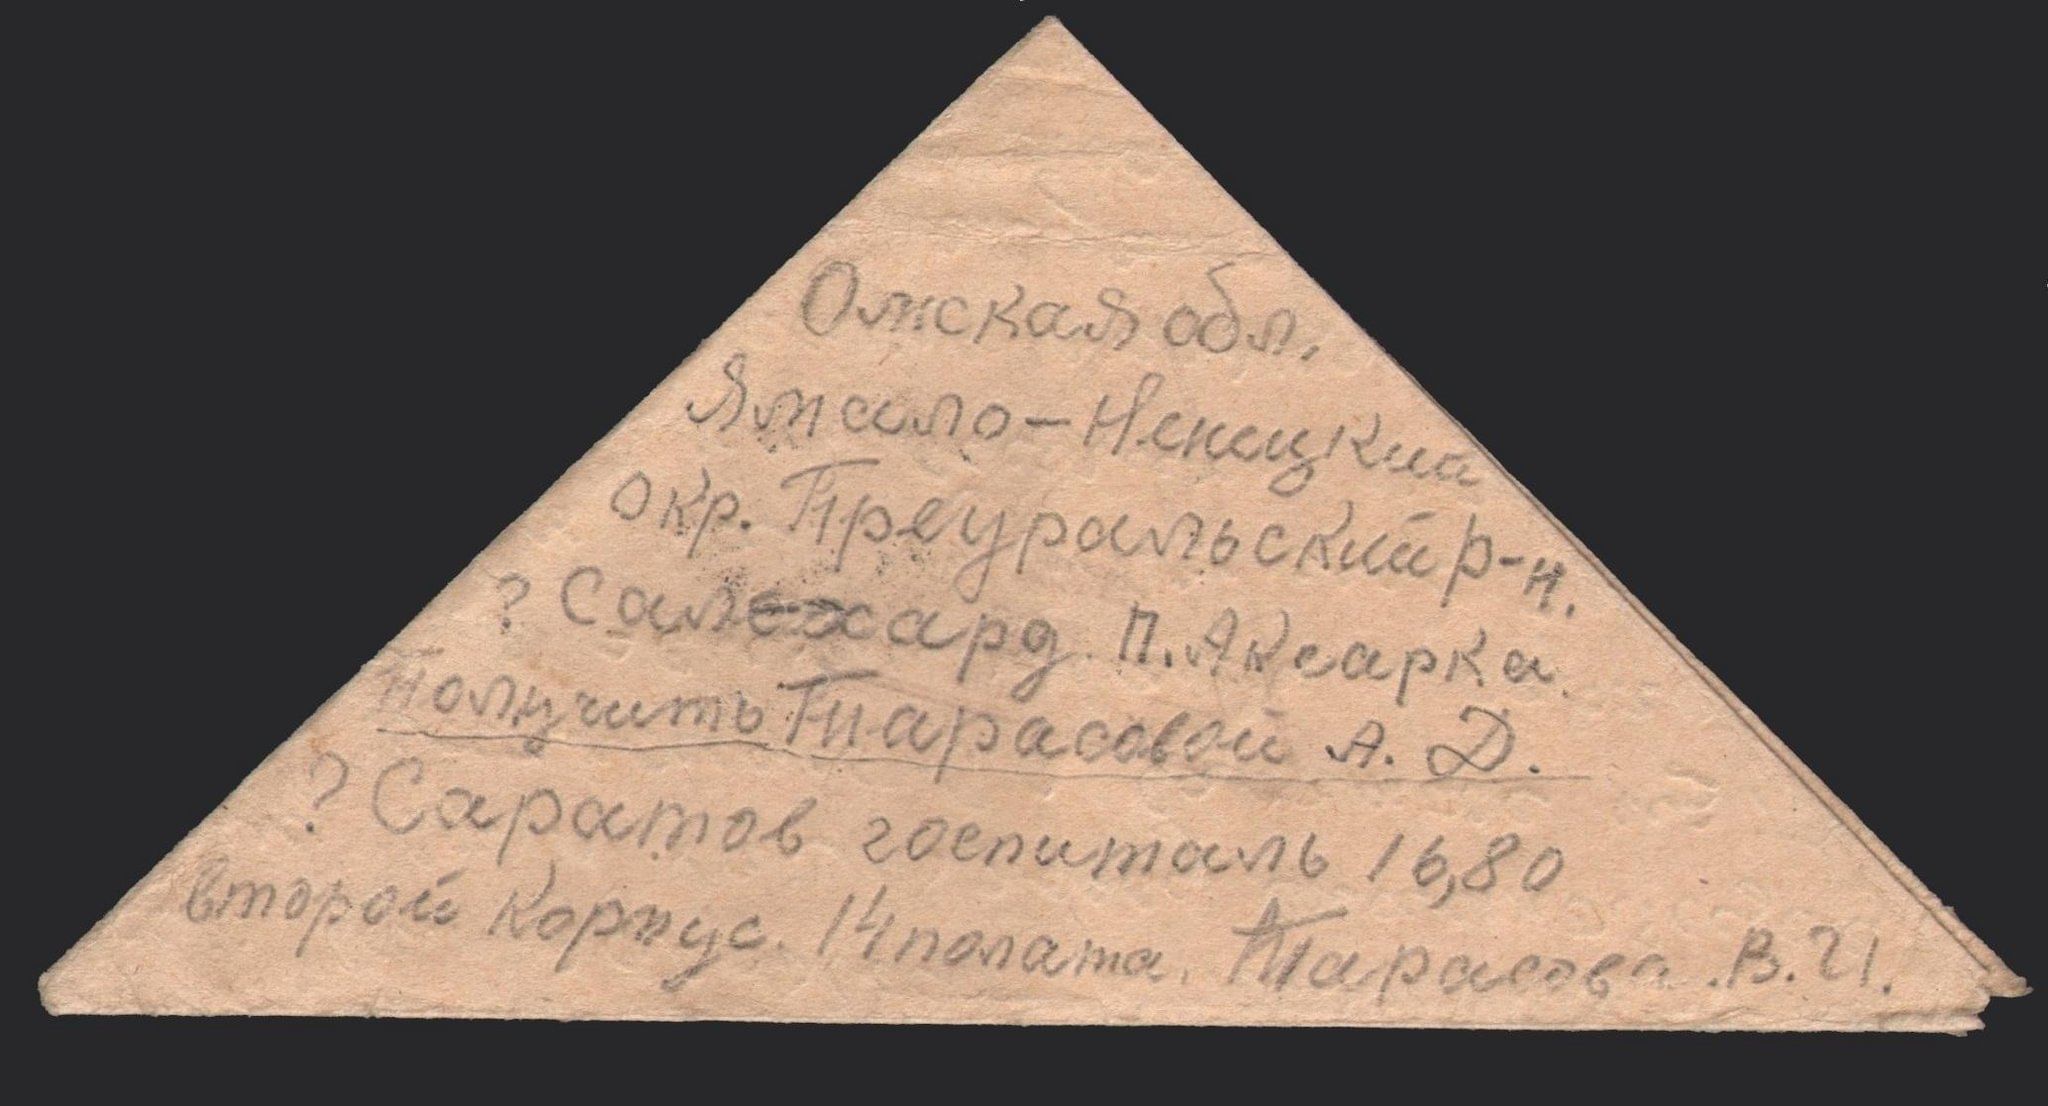 Омская обл.
Ямало-Ненецкий
окр. Преуральский р-н.
? Салехард. п. Аксарка.
Получить Тарасовой А. Д.
? Саратов госпиталь 16,80
второй корпус. 14 полата. Тарасова. В. И.